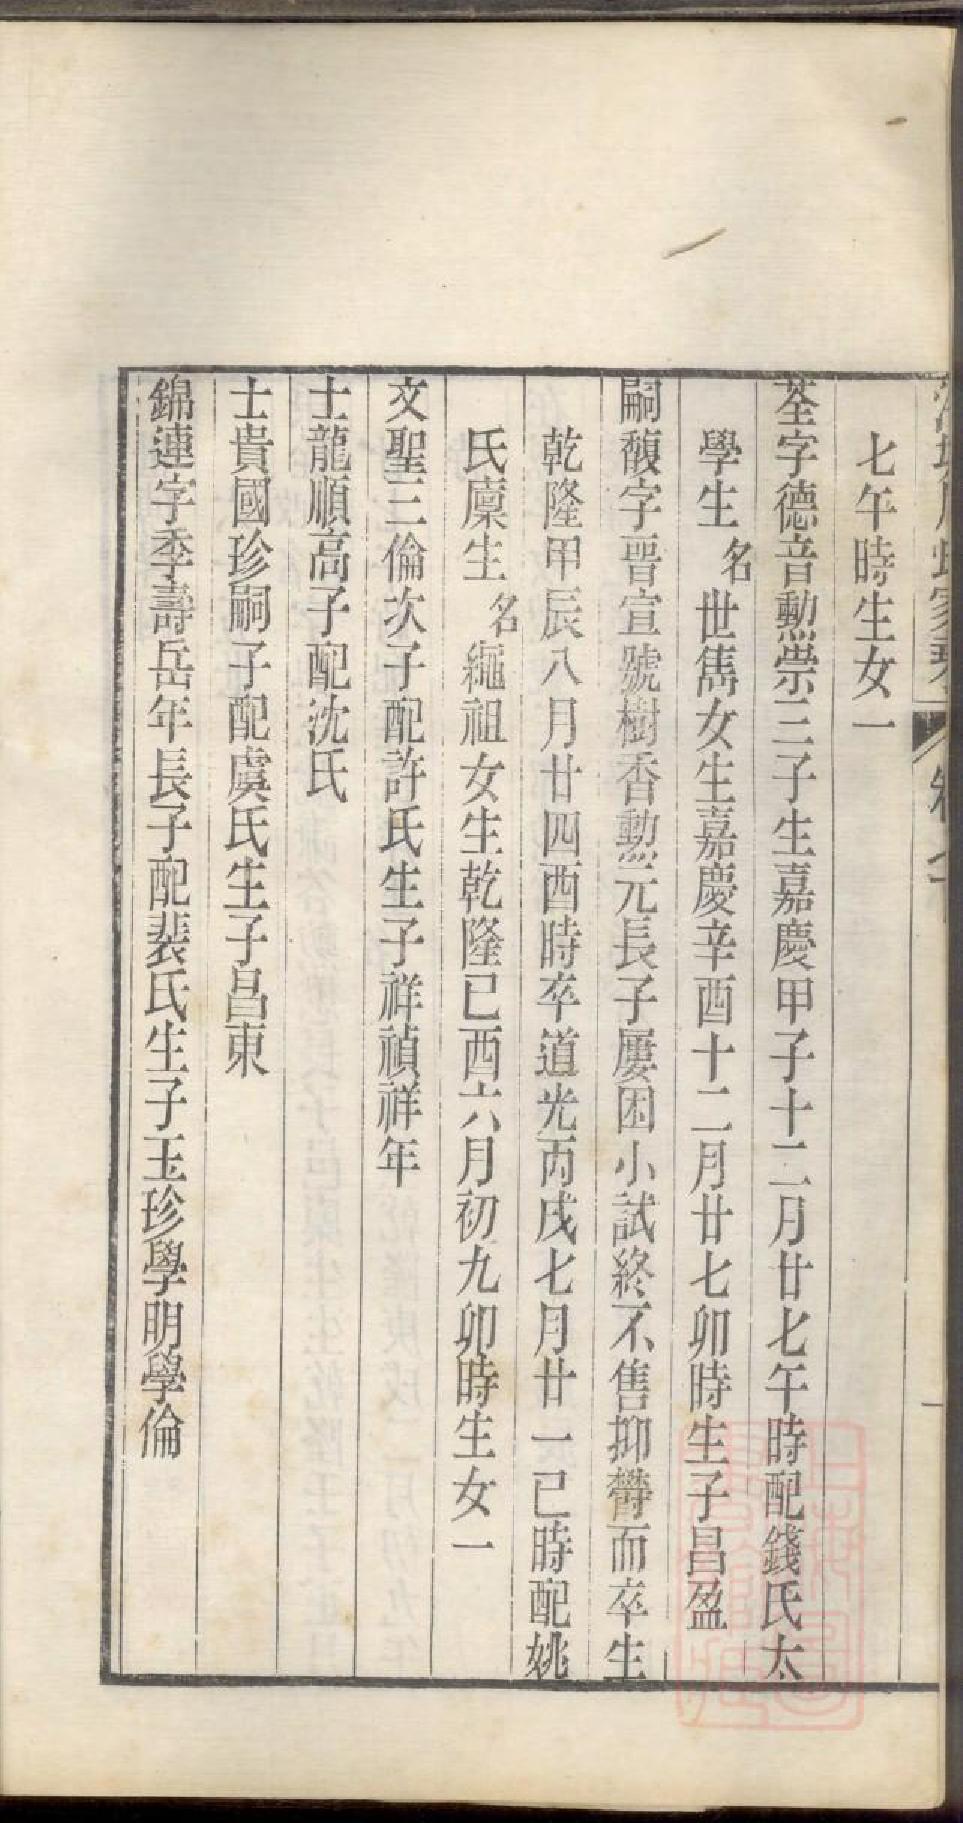 七午時生女一
荃字德音勲崇三子生嘉慶甲子十二月廿七午時配錢氏太
學生名世雋女生嘉慶辛酉十二月廿七卯時生子昌盈
嗣馥字晋宣號樹香勲元長子屢困小試終不售抑鬱而卒生
乾隆甲辰八月廿四酉時卒道光丙戌七月廿一巳時配姚
氏廪生名繩祖女生乾隆己酉六月初九卯時生女一
文聖三倫次子配許氏生子祥禎祥年
士龍順高子配沈氏
士貴國珍嗣子配虞氏生子昌東
錦蓮字季壽岳年長子配裴氏生子玉珍學明學倫